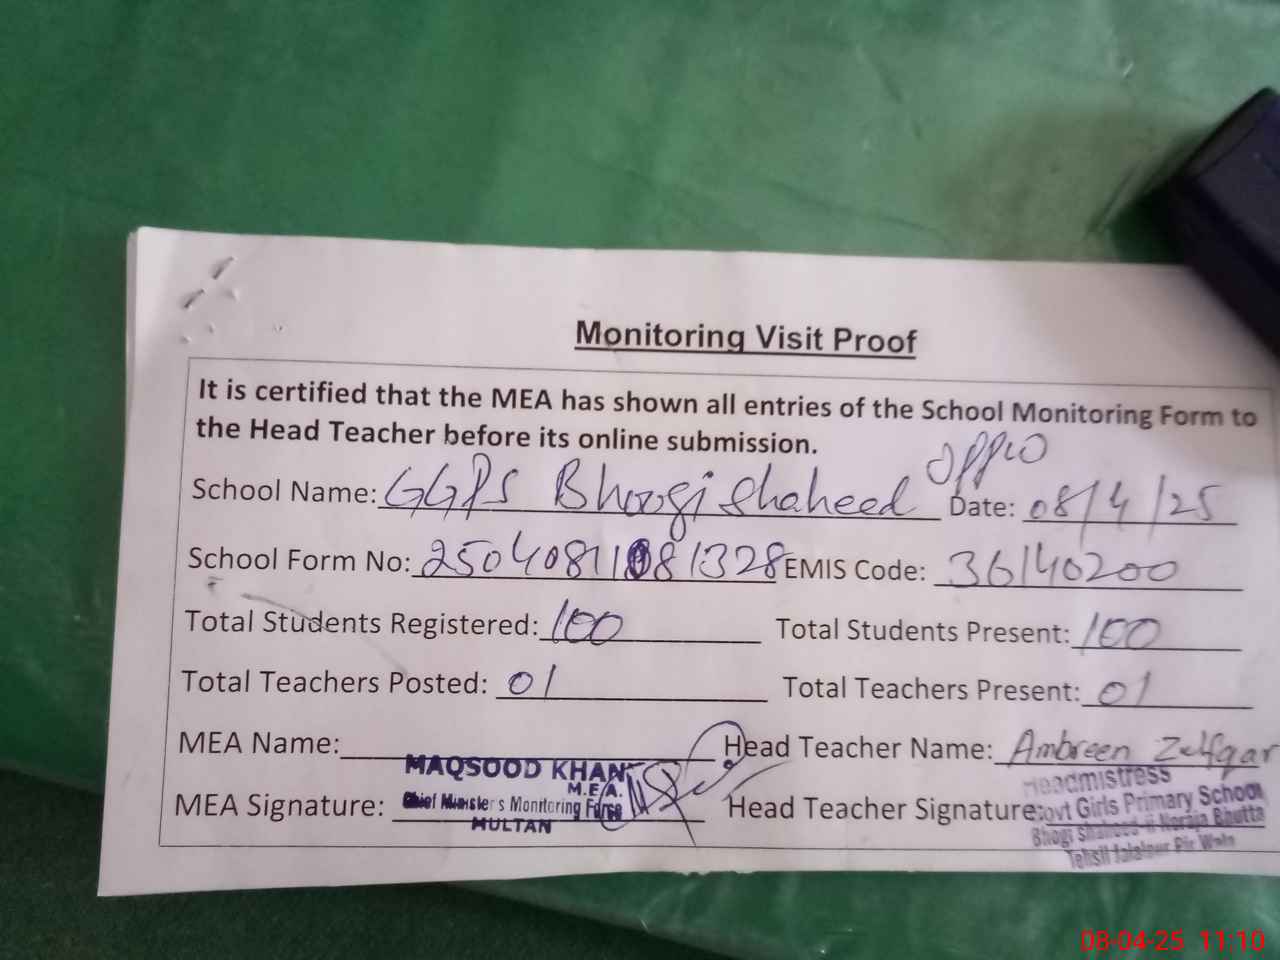 Monitoring Visit Proof
It is certified that the MEA has shown all entries of the School Monitoring Form to
the Head Teacher before its online submission.
School Name: GGPS Bhoogi Shaheed Date: 08/4/25
School Form No: 25040811081328 EMIS Code: 36140200
Total Students Registered: 100 Total Students Present: 100
Total Teachers Posted: 01 Total Teachers Present: 01
MEA Name: Head Teacher Name: Ambreen Zulfqar
MAQSOOD KHAN
M.E.A.
Chief Minister's Monitoring Force
MULTAN
MEA Signature: Head Teacher Signature:
Headmistress
Govt Girls Primary School
Bhogi Shaheed Noraja Bhutta
Tehsil Jalalpur Pir Wala
08-04-25 11:10